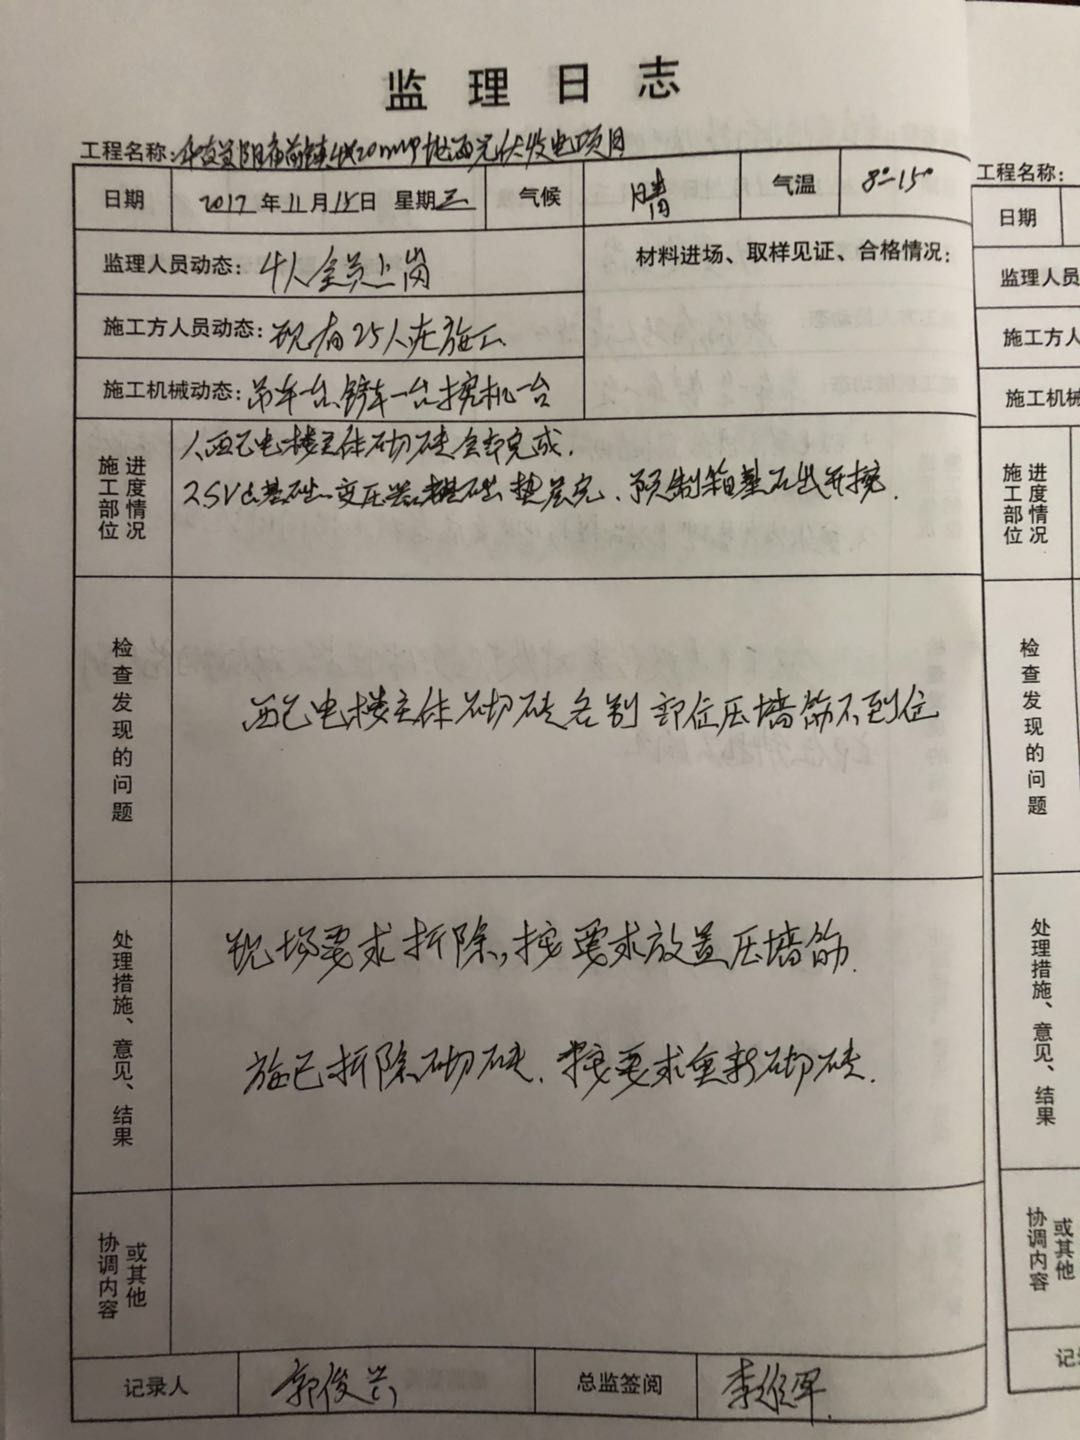 监理日志
工程名称:
镇20MWP地面光伏发电项目
日期 2017年11月15日 星期三 气候 晴 气温 8°-15°
监理人员动态: 4人全员上岗
材料进场、取样见证、合格情况:
施工方人员动态: 现有25人在施工
施工机械动态: 吊车一台 铲车一台 挖机一台
施工部位 进度情况
1、配电楼主体砌砖全部完成.
2 SVG基础、变压器基础垫层完、预制箱基础开挖.
检查发现的问题
配电楼主体砌砖各别部位压墙筋不到位
处理措施、意见、结果
现场要求折除,按要求放置压墙筋.
施已折除砌砖、按要求重新砌砖.
协调内容 或其他
记录人 郭俊兴 总监签阅
工程名称:
日期
监理人员
施工方人
施工机械
施工部位 进度情况
检查发现的问题
处理措施、意见、结果
协调内容 或其他